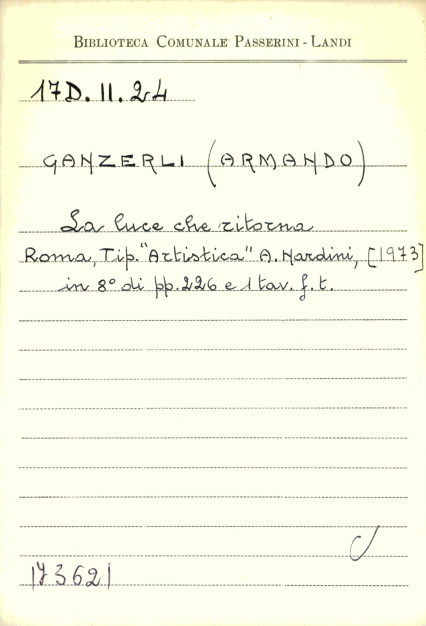 BIBLIOTECA COMUNALE PASSERINI - LANDI
17D. II. 24
GANZERLI (ARMANDO)
La luce che ritorna
Roma, Tip. "Artistica" A. Nardini, [1973]
in 8° di pp. 226 e 1 tav. f. t.
173621